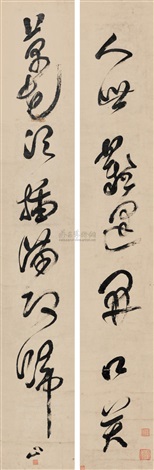 人世難逢開口笑
菊花須插滿頭歸